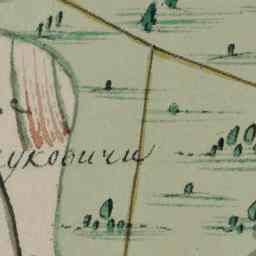 уковичи